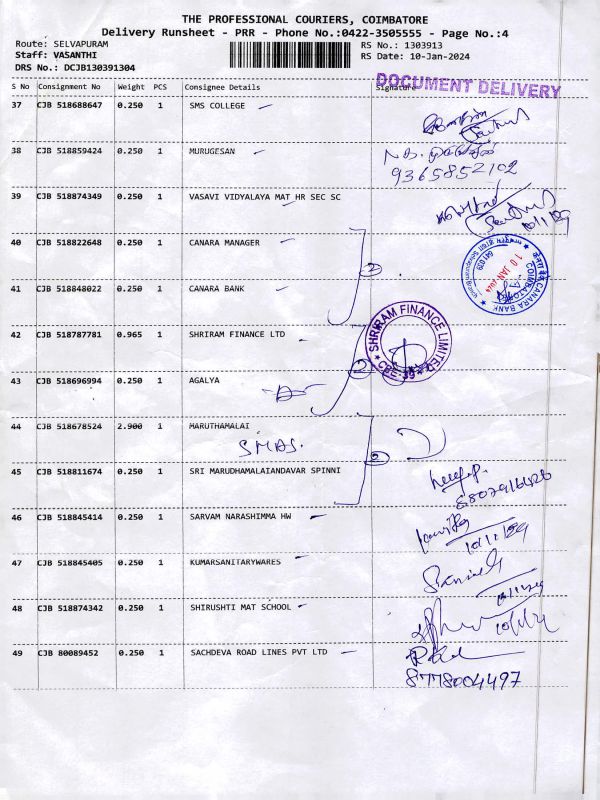 THE PROFESSIONAL COURIERS, COIMBATORE
Delivery Runsheet - PRR - Phone No.:0422-3505555 - Page No.:4
Route: SELVAPURAM
Staff: VASANTHI
DRS No.: DCJB130391304
RS No.: 1303913
RS Date: 10-Jan-2024
DOCUMENT DELIVERY
S No Consignment No Weight PCS Consignee Details Signature
37 CJB 518688647 0.250 1 SMS COLLEGE
38 CJB 518859424 0.250 1 MURUGESAN
9365852102
39 CJB 518874349 0.250 1 VASAVI VIDYALAYA MAT HR SEC SC
10/1/24
40 CJB 518822648 0.250 1 CANARA MANAGER
2
CANARA BANK
COIMBATORE
10 JAN 2024
641 039
41 CJB 518848022 0.250 1 CANARA BANK
42 CJB 518787781 0.965 1 SHRIRAM FINANCE LTD
SHRIRAM FINANCE LIMITED
CBE-39
2
43 CJB 518696994 0.250 1 AGALYA
44 CJB 518678524 2.900 1 MARUTHAMALAI
SMAS.
2
45 CJB 518811674 0.250 1 SRI MARUDHAMALAIANDAVAR SPINNI
46 CJB 518845414 0.250 1 SARVAM NARASHIMMA HW
10/1/24
47 CJB 518845405 0.250 1 KUMARSANITARYWARES
10/1/24
48 CJB 518874342 0.250 1 SHIRUSHTI MAT SCHOOL
10/1/24
49 CJB 80089452 0.250 1 SACHDEVA ROAD LINES PVT LTD
8778004497